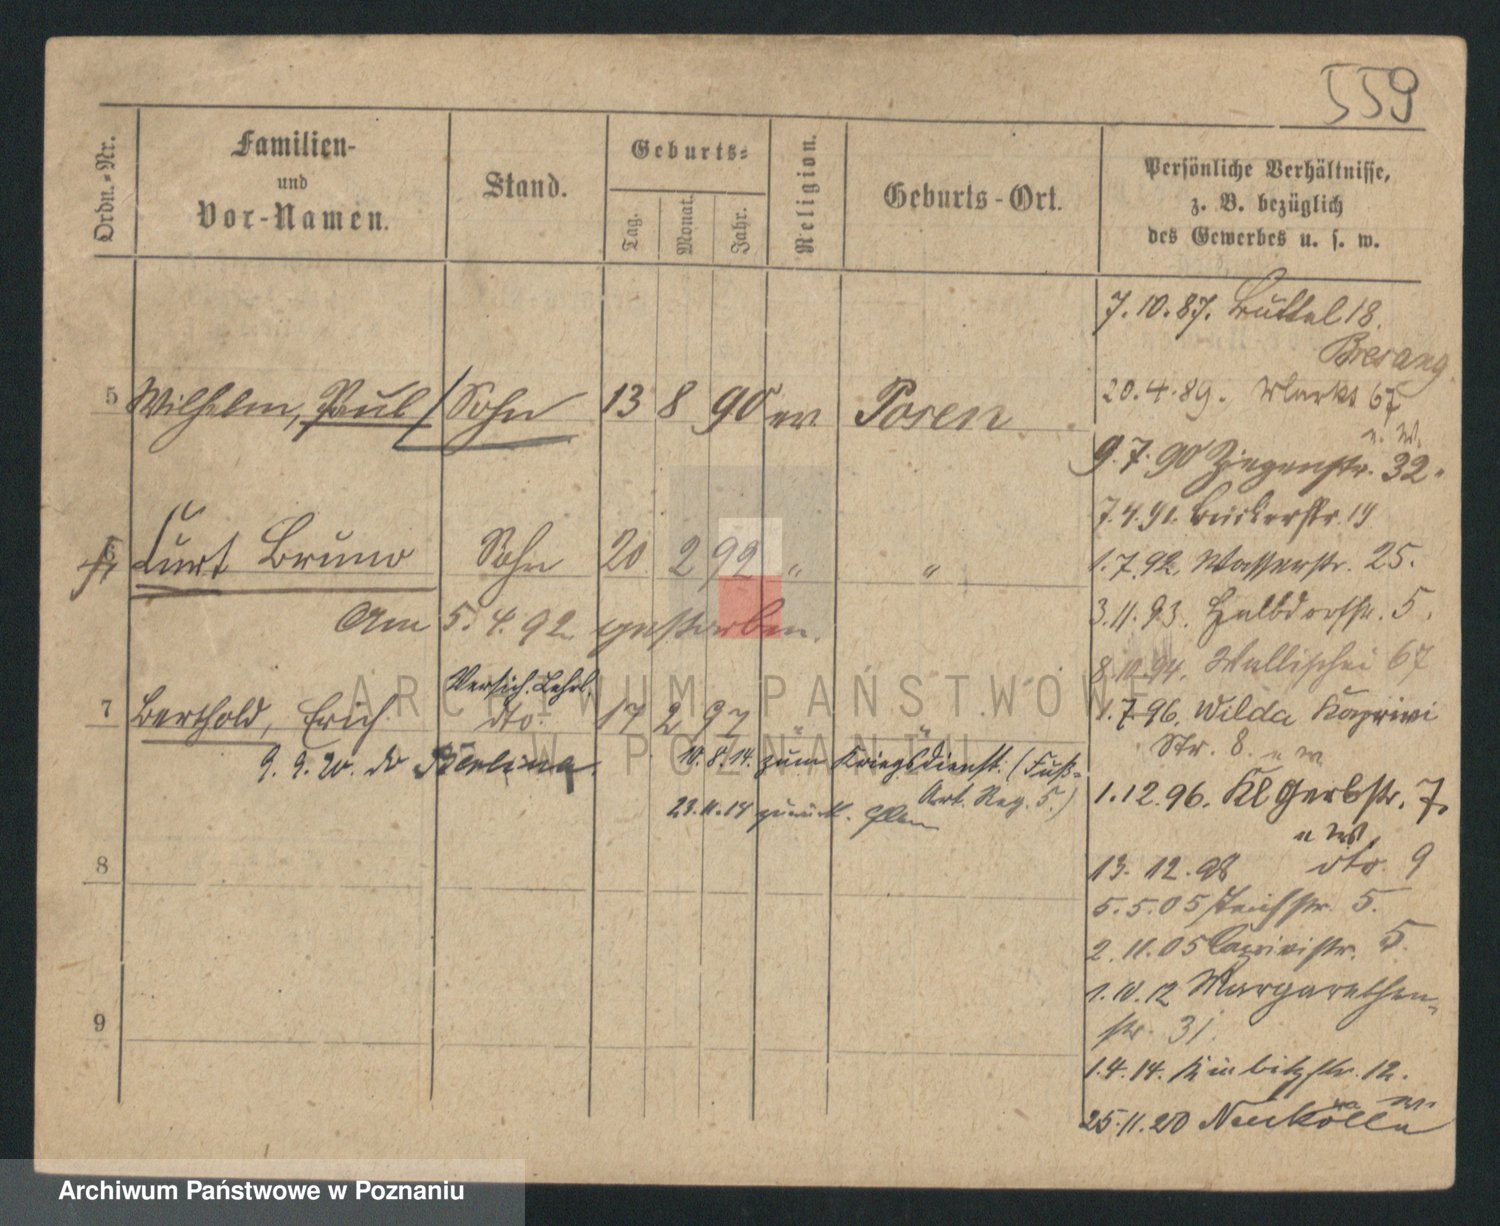 559
Ordn.-Nr.
Familien-
und
Vor-Namen.
Stand.
Geburts-
Tag.
Monat.
Jahr.
Religion.
Geburts-Ort.
Persönliche Verhältnisse,
z. B. bezüglich
des Gewerbes u. s. w.
7.10.87. Büttel 18.
20.4.89. Markt 67
5 Wilhelm, Paul / Sohn 13 8 90 ev Posen
u. W.
9.7.90 Ziegenstr. 32.
7.4.91. Bäckerstr. 19
6 Curt Bruno Sohn 20 2 92 " "
1.7.92. Wasserstr. 25.
Am 5.4.92. gestorben.
3.11.93. Halbdorfstr. 5.
8.10.94. Wallischei 67
Versich. Lehrl.
7 Berthold, Erich dto. 17 2 97 " "
1.7.96. Wilda Kaprivi
Str. 8. u W
9.9.20. 10.8.14. zum Kriegsdienst. (Fuß-
Art. Reg. 5.)
1.12.96. Kl Gerbstr. 7.
23.11.14 zurück.
u W.
8
13.12.98 dto. 9
5.5.05 Teichstr. 5.
2.11.05 Caprivistr. 5.
1.10.12 Margarethen-
str. 31.
9
1.4.14. 12.
25.11.20 Neukölln
ARCHIWUM PAŃSTWOWE
W POZNANIU
Archiwum Państwowe w Poznaniu